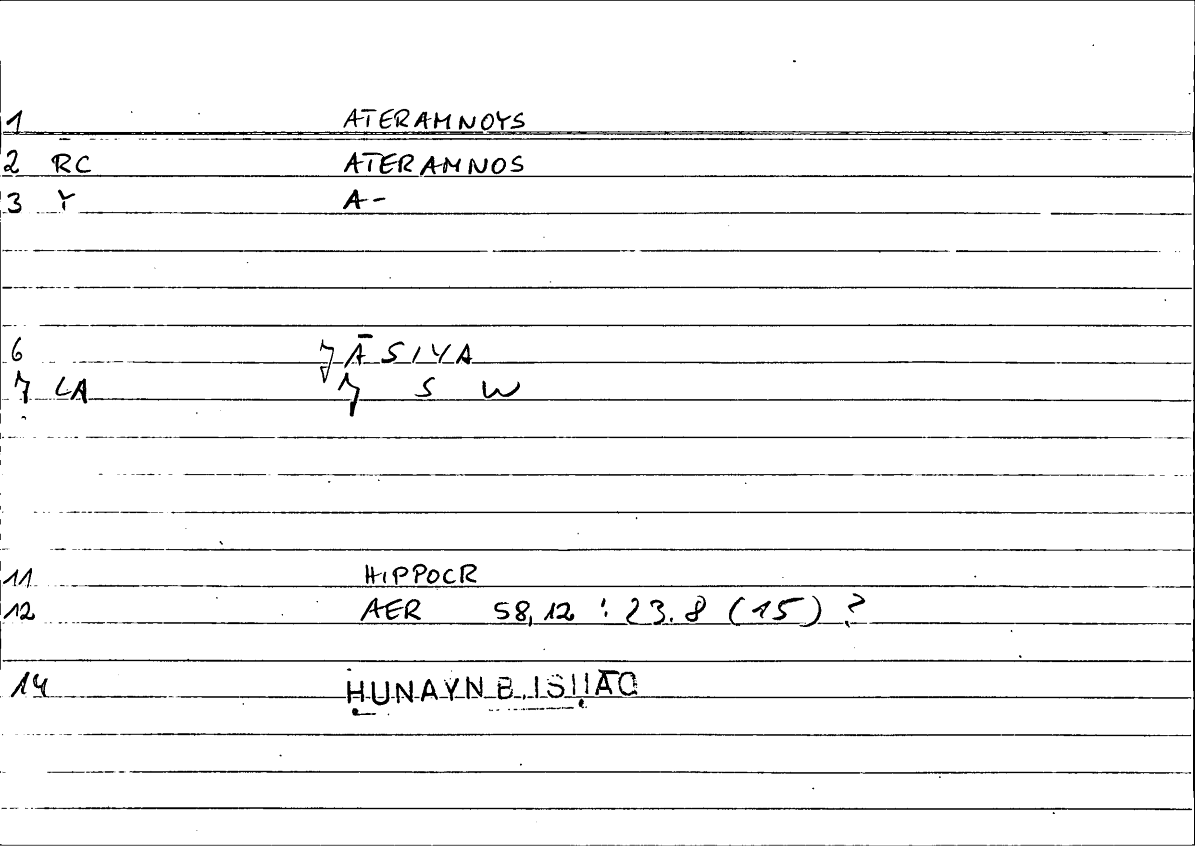 1 ATERAMNOYS
2 RC ATERAMNOS
3 Y A-
6 7ĀSIYA
7 LA 7 S W
11 HIPPOCR
12 AER 58,12 : 23.8 (15) ?
14 ḤUNAYN B. ISḤĀQ